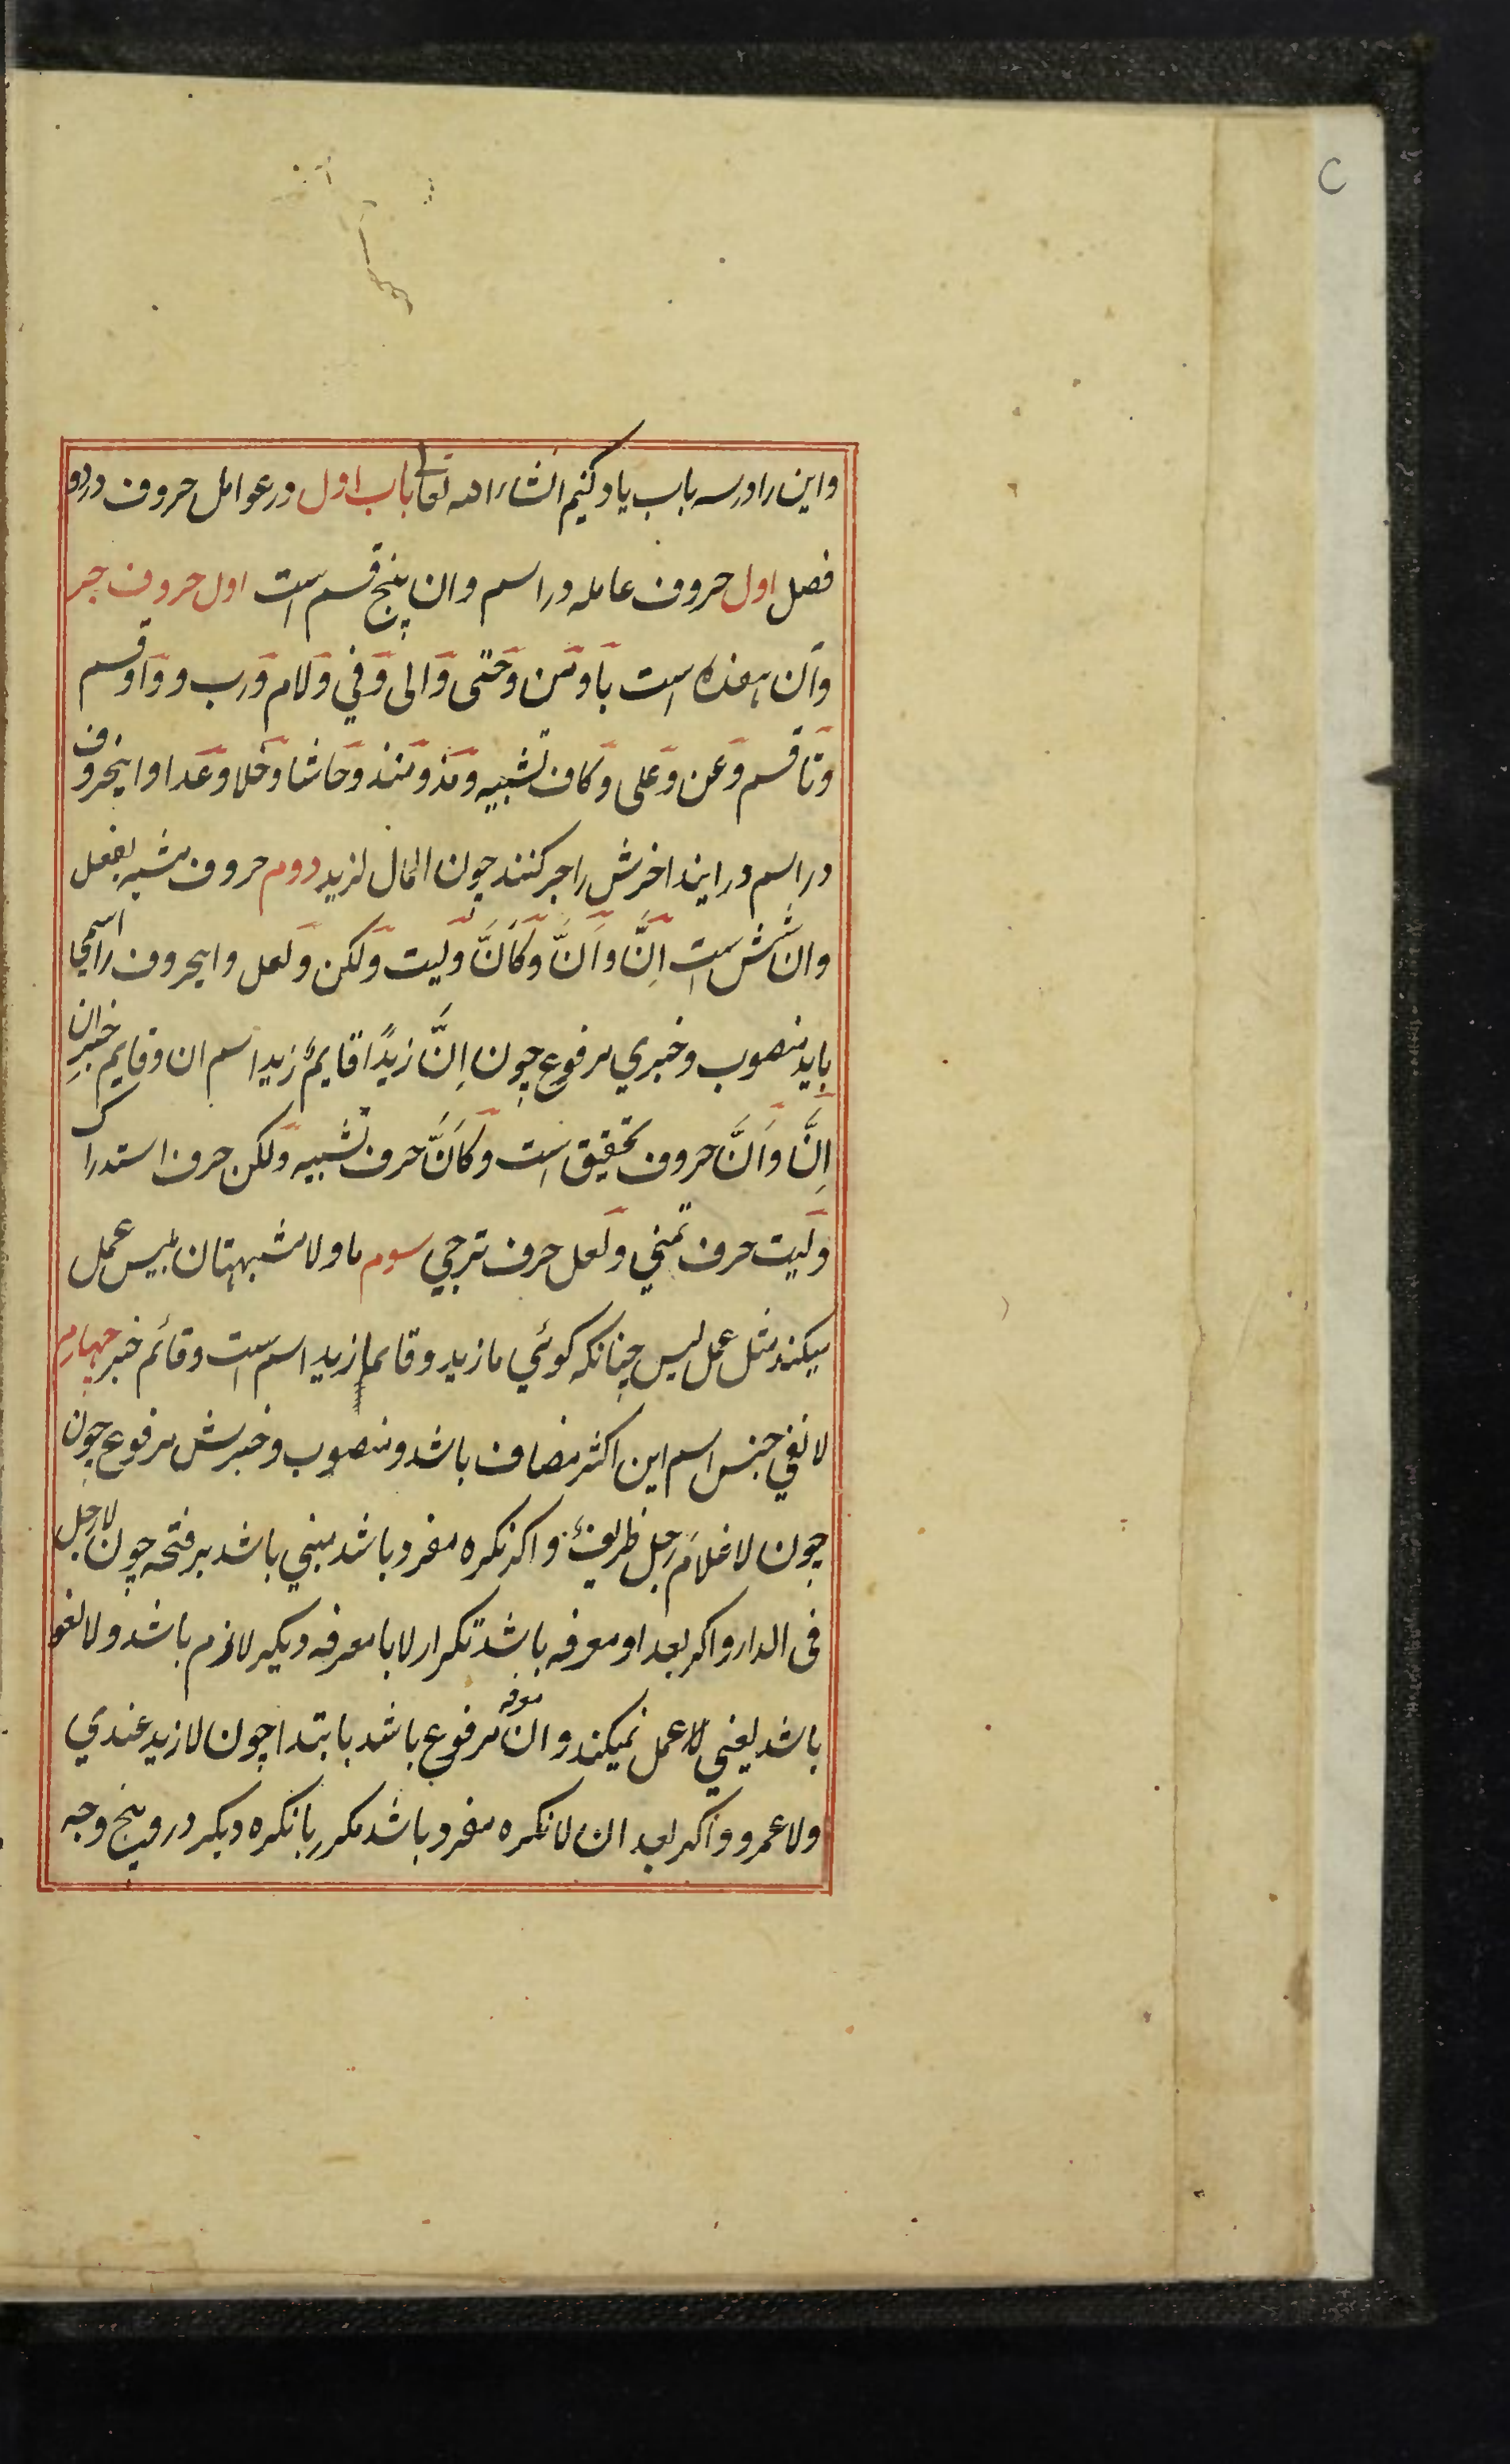 C
واین را در سه باب یاد کنیم انشاءالله تعالی باب اول در عوامل حروف در دو
فصل اول حروف عامله در اسم وان پنج قسم است اول حروف جر
وآن هفده است با ومن وحتی والی وفی ولام ورب و واو قسم
وتا قسم وعن وعلی وکاف تشبیه ومذ ومنذ وحاشا وخلا وعدا واینحروف
در اسم در ایند اخرش را جر کنند چون المال لزید دوم حروف مشبه بفعل
وان شش است اِنَّ واَنَّ وکَاَنَّ ولیت ولکن ولعل واینحروف را اسمی
باید منصوب وخبری مرفوع چون اِنَّ زیدًا قایمٌ زیدا اسم ان وقایم خبرِ ان
اِنَّ واَنَّ حروف تحقیق است وکَاَنَّ حرف تشبیه ولکن حرف استدراک
ولیت حرف تمنی ولعل حرف ترجی سوم ما ولا مشبهتان بلیس عمل
میکند مثل عمل لیس چنانکه کوئی ما زید وقایما زید اسم است وقائم خبر چهارم
لا نفی جنس اسم این اکثر مضاف باشد ومنصوب وخبرش مرفوع چون
چون لا غلامَ رجل ظریفٌ واکر نکره مفرد باشد مبنی باشد بر فتحه چون لارجل
فی الدار واکر بعد او معرفه باشد تکرار لا با معرفه دیکر لازم باشد ولا لغو
باشد یعنی لا عمل نمیکند وان معرفه مرفوع باشد بابتدا چون لا زید عندی
ولا عمرو واکر بعد ان لا نکره مفرد باشد مکرر با نکره دیکر درو پنج وجه